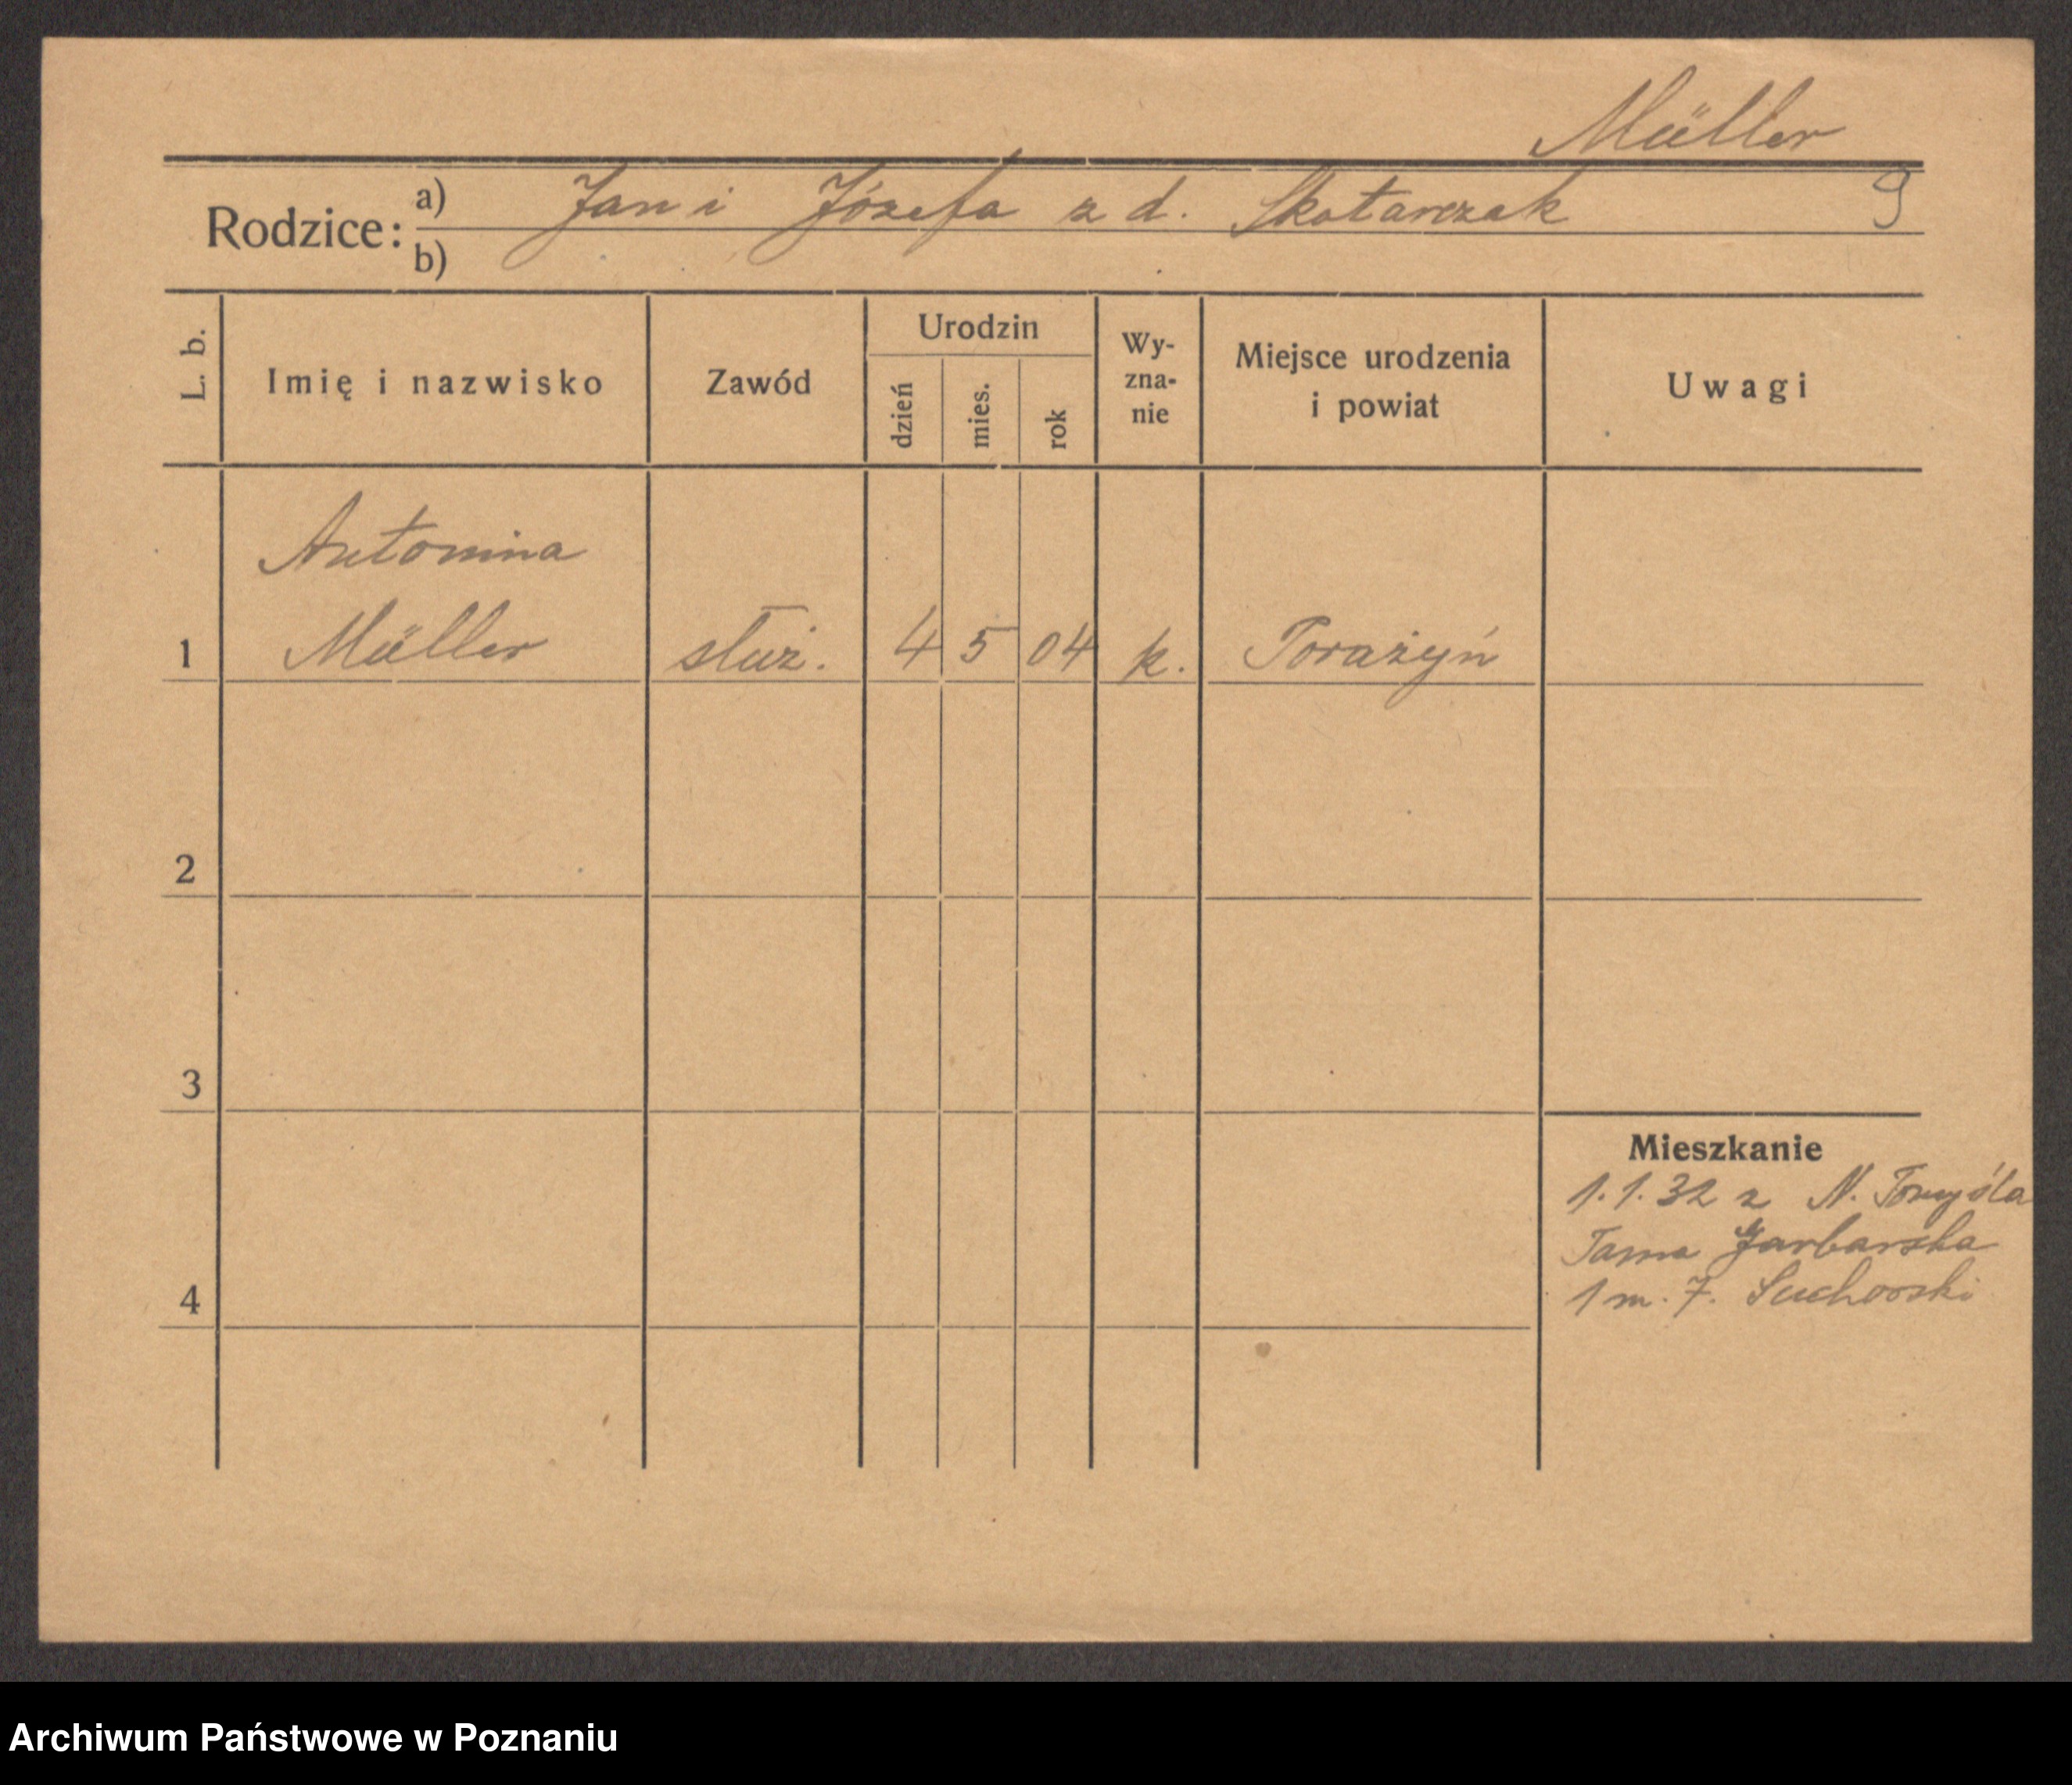 Müller
9
Rodzice: a) Jan i Józefa z d. Skotarczak
b)
L. b.
Imię i nazwisko
Zawód
Urodzin
dzień
mies.
rok
Wy-
zna-
nie
Miejsce urodzenia
i powiat
Uwagi
Antonina
1 Müller służ. 4 5 04 k. Porażyń
2
3
4
Mieszkanie
1.1.32 z N. Tomyśla
Tama Garbarska
1 m. 7. Suchorski
Archiwum Państwowe w Poznaniu